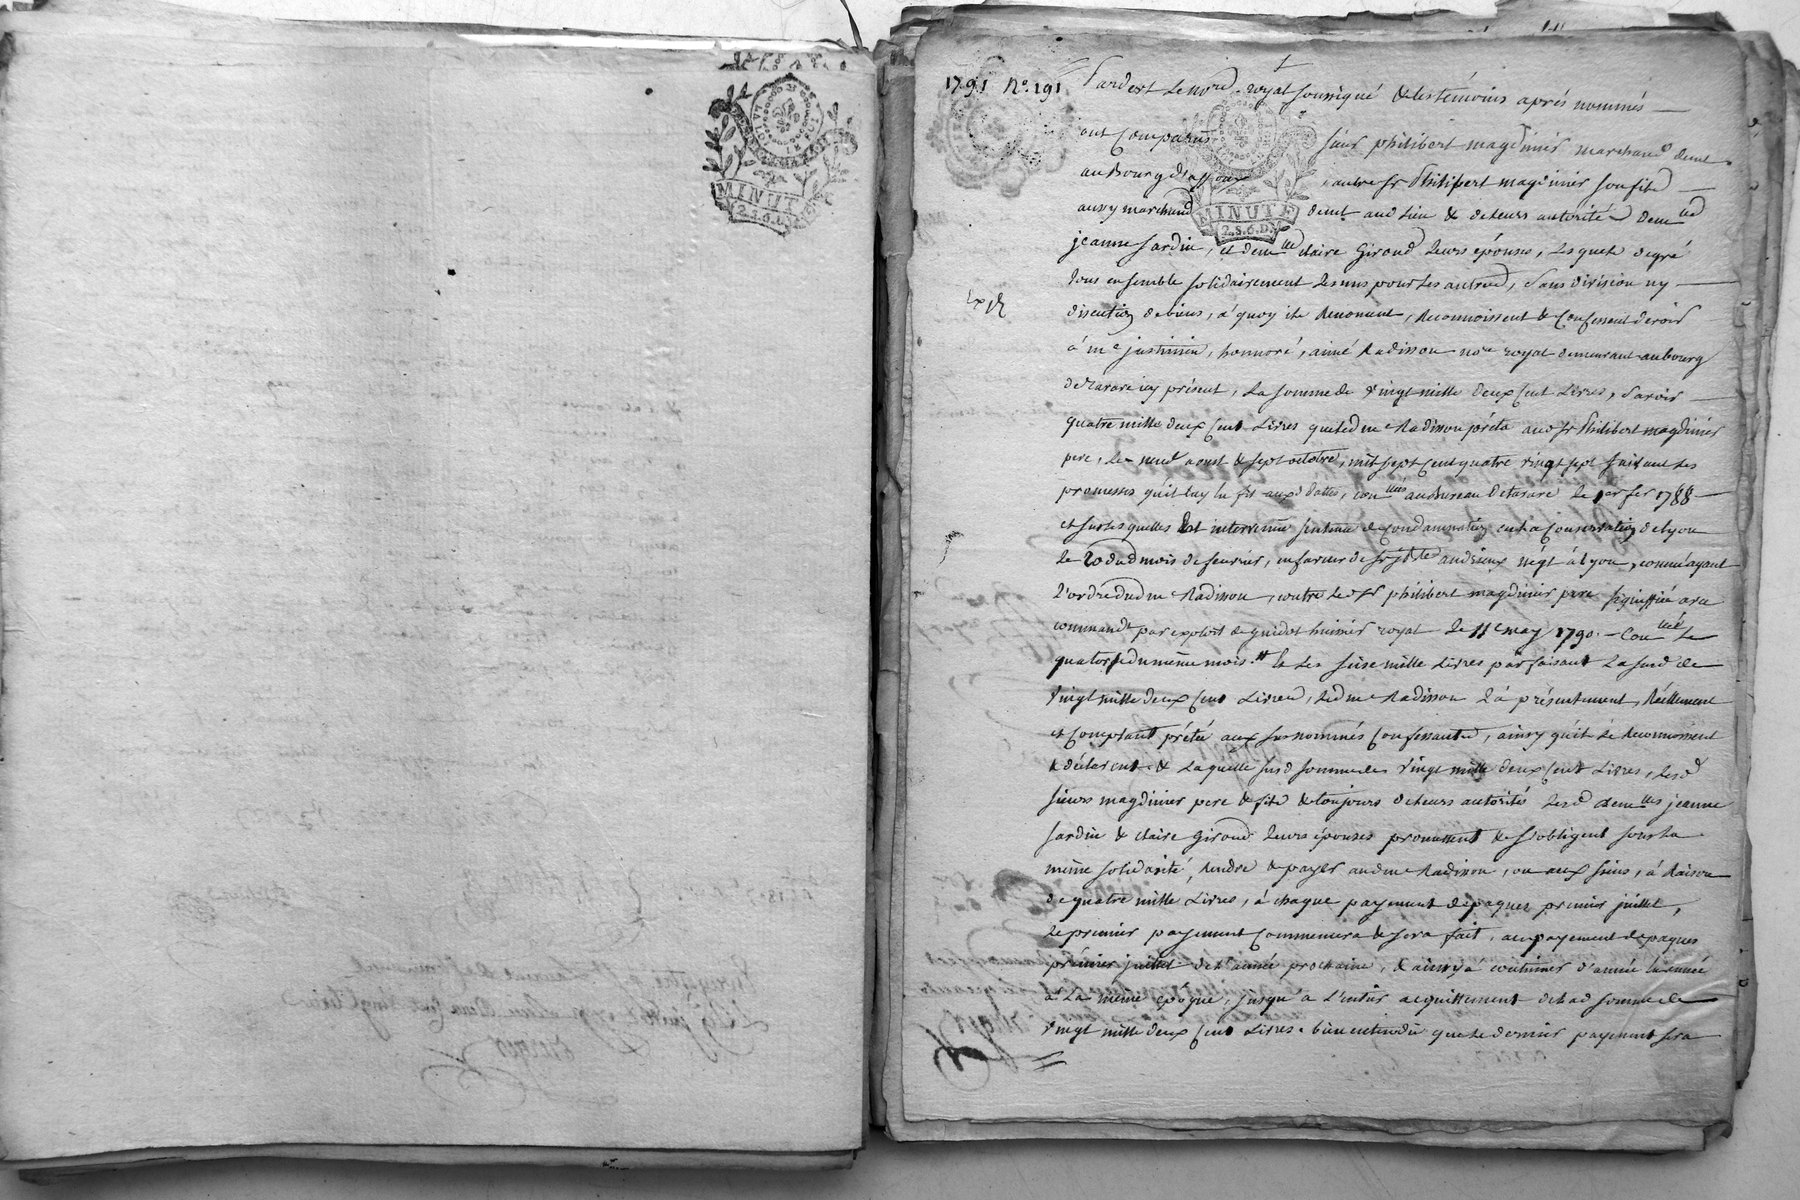 MINUTE
2.S.6.D.
1791 N.º 191
Pardevt Le nore royal soussigné & les témoins aprés nommés
ont Comparus sieur philibert magdinier marchand demt
au Bourg d'affoux, autre sr Philibert magdinier son fils
aussy marchand demt aud Lieu & de Leurs autorités demlles
jeanne Sardin, et demlle Claire Giroud Leurs épouses, Lesquels de gré
tous ensemble solidairement Les uns pour Les autres, sans division ny
Expé
discution de biens, à quoy ils Renoncent, Reconnoissent & Confessent devoir
à me justinien, honnoré, aimé Radisson nore royal demeurant au bourg
de Tarare icy présent, La somme de vingt mille deux Cent Livres, savoir
quatre mille deux Cent Livres que led me Radisson préta aud sr Philibert magdinier
pere, Le neuf aoust & sept octobre, mil sept Cent quatre vingt sept suivant Les
promesses qu'il luy en fit auxd dattes, conllées au Bureau de Tarare le 1er fer 1788
et sur Lesquelles est intervenüe sentence de Condamnation en La Conservation de Lyon
Le 20 dud mois de feuvrier, en faveur de sr andrieux négt à Lyon, comme ayant
L'ordre dud me Radisson, contre Led sr philibert magdinier pere signiffiée avec
commandt par exploit de guidot huissier royal Le 11e may 1790. Conllé Le
quatorse du même mois. & Les seise mille Livres parfaisant La susd de
vingt mille deux Cent Livres, Led me Radisson L'à présentement, Réellement
et Comptant prétée aux susnommés Confessants, ainsy qu'ils Le Reconnoissent
& déclarent. & Laquelle susd somme de vingt mille deux Cent Livres, Lesd
sieurs magdinier pere & fils & toujours de Leurs autorités Lesd demlles jeanne
Sardin & Claire Giroud Leurs épouses promettent & s'obligent sous La
même solidarité, Rendre & payer aud me Radisson, ou aux siens, à Raison
de quatre mille Livres, à chaque payement de paques premier juillet,
Le premier payement Commencera & sera fait, au payement de paques
premier juillet de L'année prochaine, & ainsy à continuer d'année en année
à La même époque, jusqu'a L'entier acquittement de Lad somme de
vingt mille deux Cent Livres. bien entendu que Le dernier payement sera